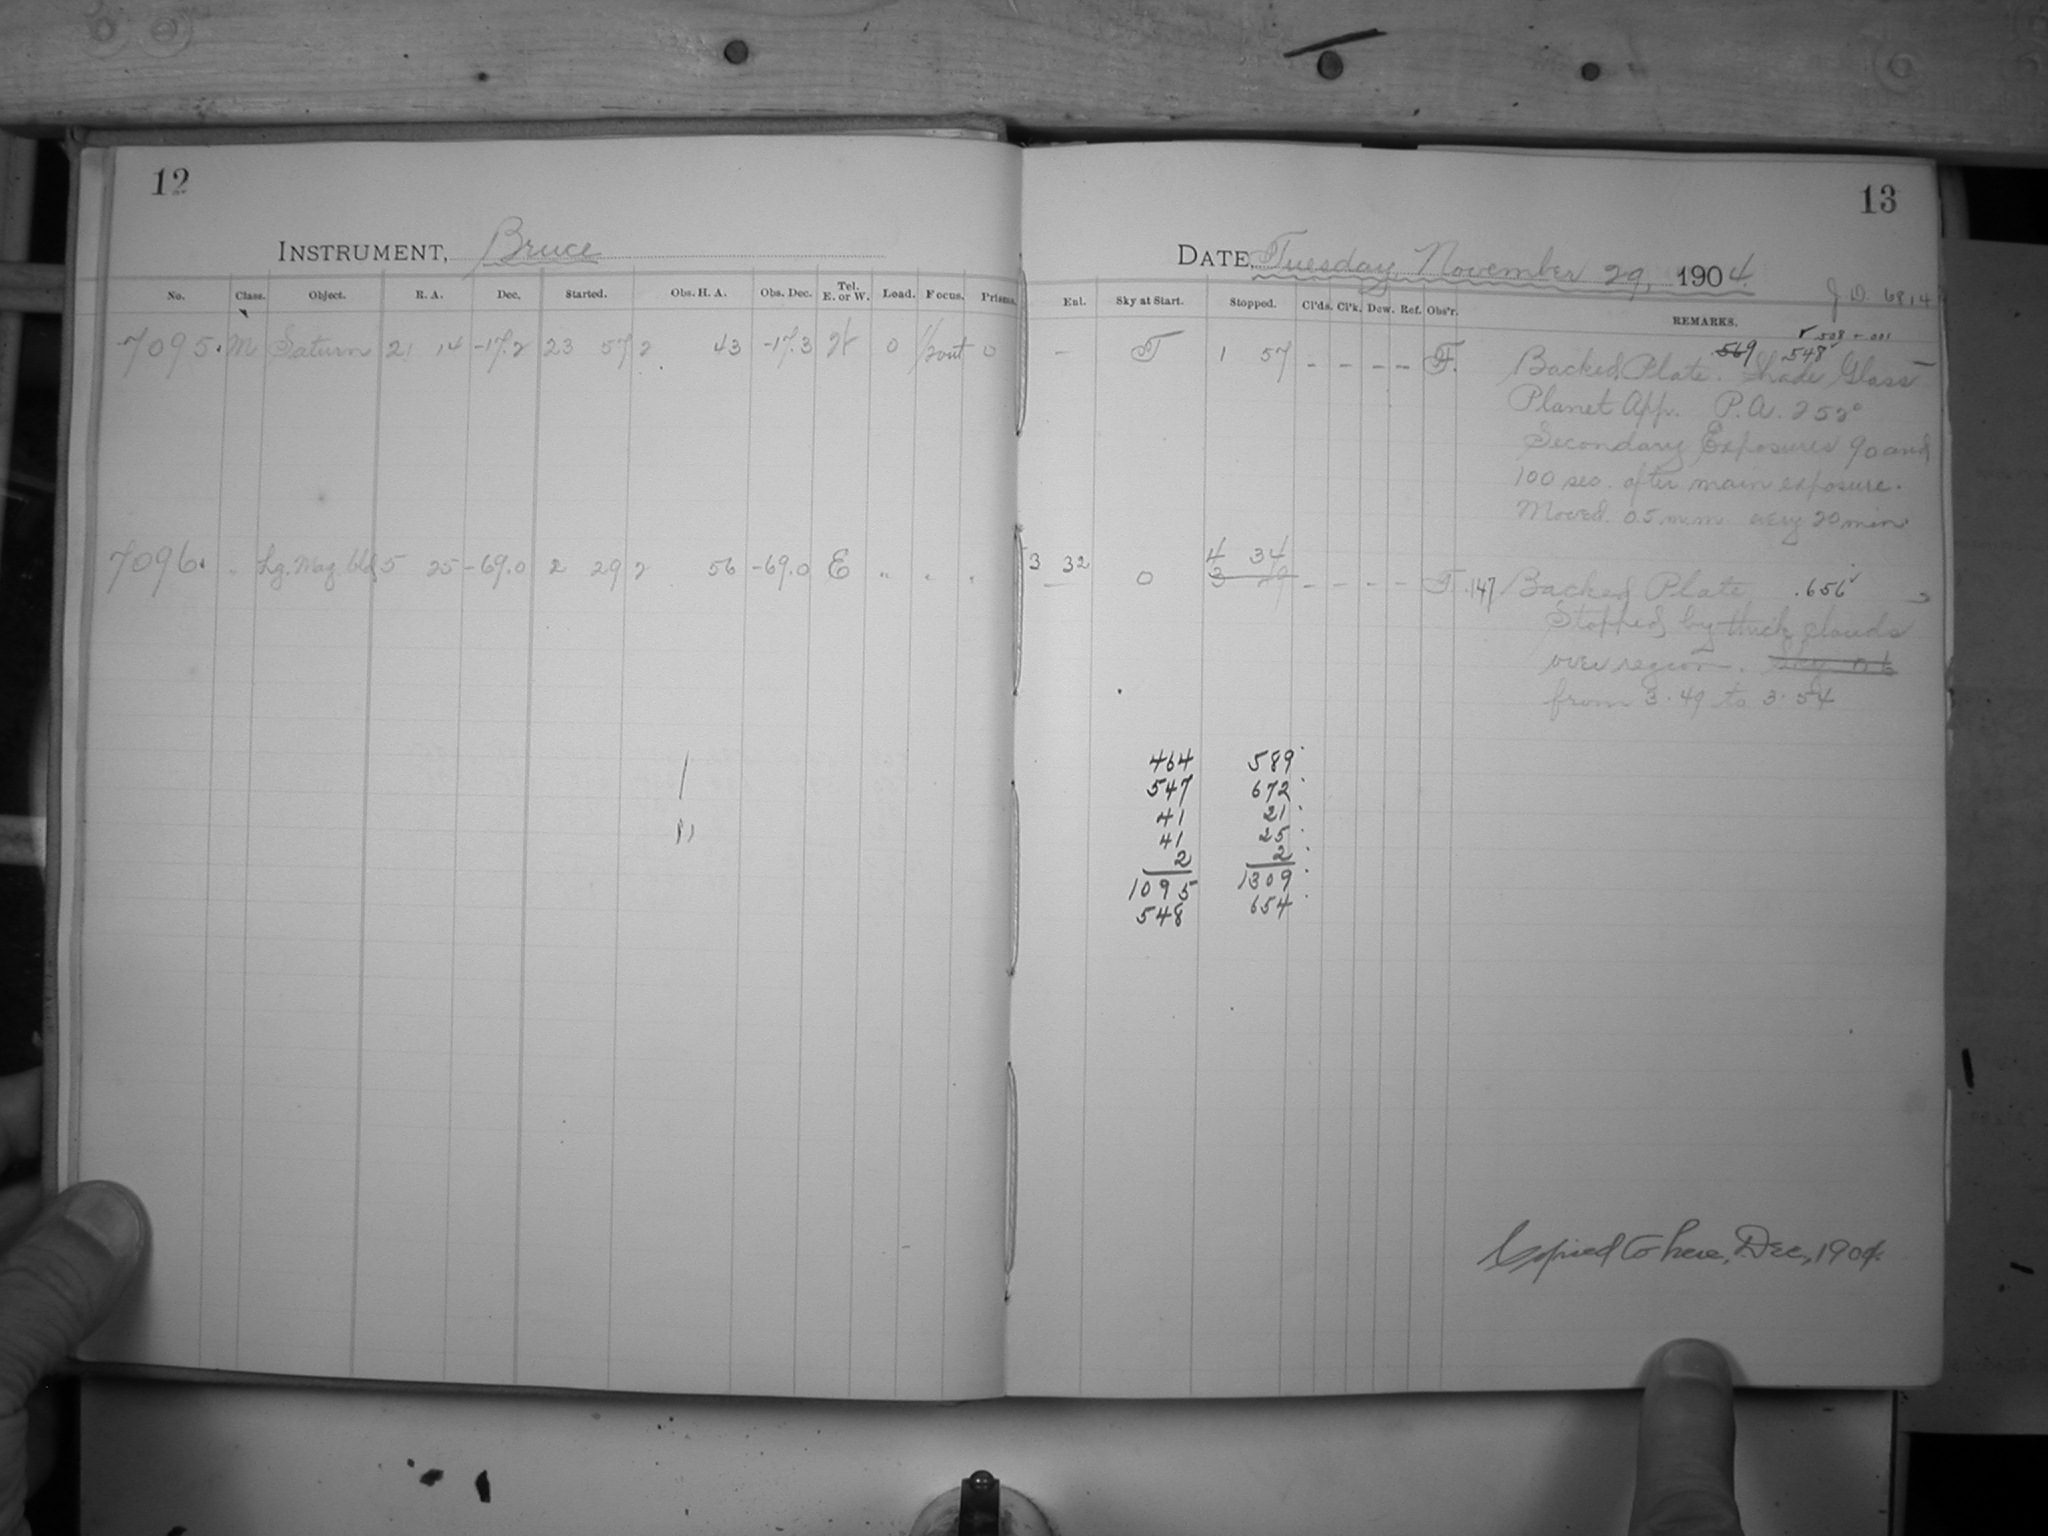 12
INSTRUMENT, Bruce
No. Class. Object. R. A. Dec. Started. Obs. H. A. Obs. Dec. Tel. E. or W. Load. Focus. Prisms.
7095. M Saturn 21 14 -17.2 23 57 2 43 -17.3 W 0 1/2 out 0
7096. " Lg. Mag. Cld 5 25 -69.0 2 29 2 56 -69.0 E " " "
13
DATE, Tuesday, November 29, 1904.
J. D. 6814
Exl. Sky at Start. Stopped. Cl'ds. Cl'k. Dew. Ref. Obs'r. REMARKS.
.508 - .001
.569 548
- F 1 57 - - - - F. Backed Plate. Shade Glass
Planet App. P.A. 252°
Secondary Exposures 90 and
100 sec. after main exposure.
Moved 0.5 mm. every 20 min.
3 32 0 4 34 - - - - F .147 Backed Plate .656
Stopped by thick clouds
over region.
from 3.49 to 3.54
464 589
547 672
41 21
41 25
2 2
1095 1309
548 654
Copied to here, Dec, 1904.